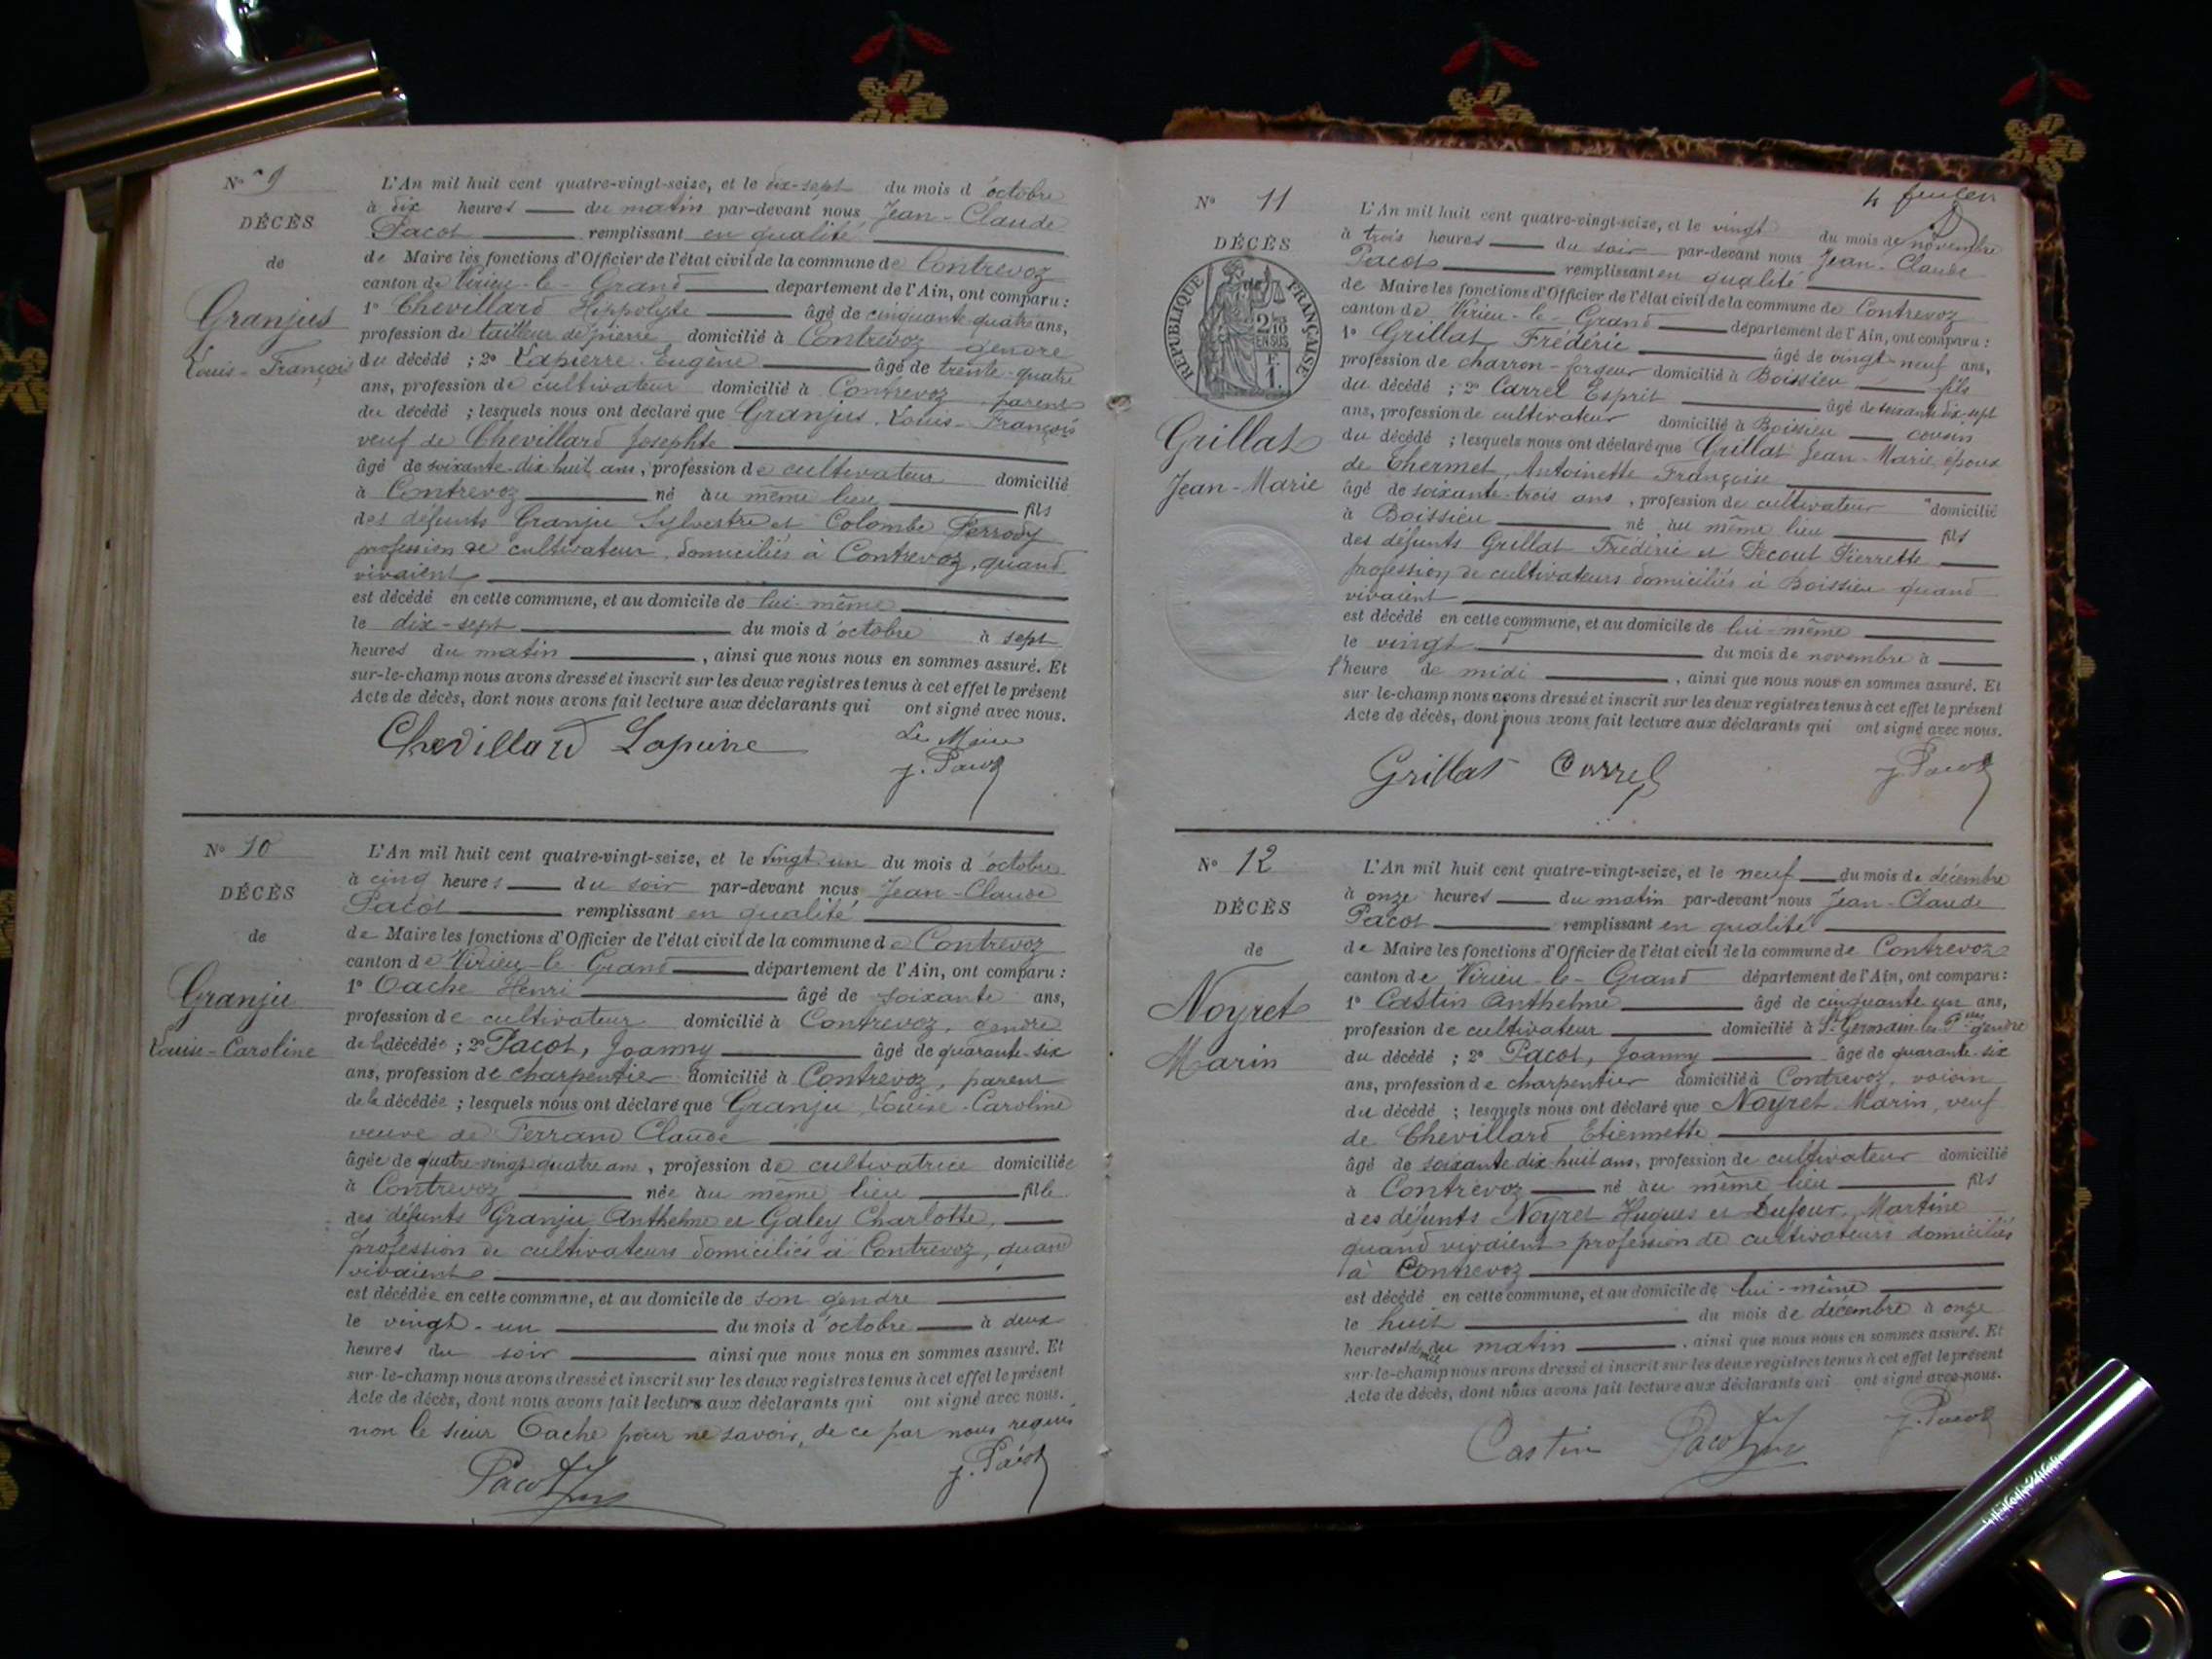 N° 9
DÉCÈS
de
Granjus
Louis-François
L'An mil huit cent quatre-vingt-seize, et le dix-sept du mois d'octobre
à dix heures du matin par-devant nous Jean-Claude
Pacot remplissant en qualité
de Maire les fonctions d'Officier de l'état civil de la commune de Contrevoz
canton de Virieu-le-Grand département de l'Ain, ont comparu :
1° Chevillard Hippolyte âgé de cinquante quatre ans,
profession de tailleur de pierre domicilié à Contrevoz gendre
du décédé ; 2° Lapierre Eugène âgé de trente-quatre
ans, profession de cultivateur domicilié à Contrevoz parent
du décédé ; lesquels nous ont déclaré que Granjus Louis-François
veuf de Chevillard Josephte
âgé de soixante-dix huit ans, profession de cultivateur domicilié
à Contrevoz né au même lieu fils
des défunts Granju Sylvestre et Colombe Perrody
profession de cultivateur domiciliés à Contrevoz, quand
vivaient
est décédé en cette commune, et au domicile de lui-même
le dix-sept du mois d'octobre à sept
heures du matin, ainsi que nous nous en sommes assuré. Et
sur-le-champ nous avons dressé et inscrit sur les deux registres tenus à cet effet le présent
Acte de décès, dont nous avons fait lecture aux déclarants qui ont signé avec nous.
Chevillard Lapierre Le Maire
J. Pacot
N° 10
DÉCÈS
de
Granju
Louise-Caroline
L'An mil huit cent quatre-vingt-seize, et le vingt-un du mois d'octobre
à cinq heures du soir par-devant nous Jean-Claude
Pacot remplissant en qualité
de Maire les fonctions d'Officier de l'état civil de la commune de Contrevoz
canton de Virieu-le-Grand département de l'Ain, ont comparu :
1° Cache Henri âgé de soixante ans,
profession de cultivateur domicilié à Contrevoz, gendre
de la décédée ; 2° Pacot, Joanny âgé de quarante-six
ans, profession de charpentier domicilié à Contrevoz, parent
de la décédée ; lesquels nous ont déclaré que Granju Louise-Caroline
veuve de Ferrand Claude
âgée de quatre-vingt quatre ans, profession de cultivatrice domiciliée
à Contrevoz née au même lieu fille
des défunts Granju Anthelme et Galey Charlotte,
profession de cultivateurs domiciliés à Contrevoz, quand
vivaient
est décédée en cette commune, et au domicile de son gendre
le vingt-un du mois d'octobre à deux
heures du soir ainsi que nous nous en sommes assuré. Et
sur-le-champ nous avons dressé et inscrit sur les deux registres tenus à cet effet le présent
Acte de décès, dont nous avons fait lecture aux déclarants qui ont signé avec nous.
non le sieur Cache pour ne savoir, de ce par nous requis
Pacot J. Pacot
4 feuillet
N° 11
DÉCÈS
de
RÉPUBLIQUE FRANÇAISE
2/10 EN SUS
F. 1.
Grillat
Jean-Marie
L'An mil huit cent quatre-vingt-seize, et le vingt du mois de novembre
à trois heures du soir par-devant nous Jean-Claude
Pacot remplissant en qualité
de Maire les fonctions d'Officier de l'état civil de la commune de Contrevoz
canton de Virieu-le-Grand département de l'Ain, ont comparu :
1° Grillat Frédéric âgé de vingt-neuf ans,
profession de charron-forgeur domicilié à Boissieu fils
du décédé ; 2° Carrel Esprit âgé de soixante dix-sept
ans, profession de cultivateur domicilié à Boissieu cousin
du décédé ; lesquels nous ont déclaré que Grillat Jean-Marie époux
de Thermet, Antoinette Françoise
âgé de soixante-trois ans, profession de cultivateur domicilié
à Boissieu né au même lieu fils
des défunts Grillat Frédéric et Pecout Pierrette
profession de cultivateurs domiciliés à Boissieu quand
vivaient
est décédé en cette commune, et au domicile de lui-même
le vingt du mois de novembre à
l'heure de midi, ainsi que nous nous en sommes assuré. Et
sur-le-champ nous avons dressé et inscrit sur les deux registres tenus à cet effet le présent
Acte de décès, dont nous avons fait lecture aux déclarants qui ont signé avec nous.
Grillat Carrel J. Pacot
N° 12
DÉCÈS
de
Noyret
Marin
L'An mil huit cent quatre-vingt-seize, et le neuf du mois de décembre
à onze heures du matin par-devant nous Jean-Claude
Pacot remplissant en qualité
de Maire les fonctions d'Officier de l'état civil de la commune de Contrevoz
canton de Virieu-le-Grand département de l'Ain, ont comparu :
1° Castin Anthelme âgé de cinquante un ans,
profession de cultivateur domicilié à St Germain les P. gendre
du décédé ; 2° Pacot, Joanny âgé de quarante-six
ans, profession de charpentier domicilié à Contrevoz, voisin
du décédé ; lesquels nous ont déclaré que Noyret Marin, veuf
de Chevillard Etiennette
âgé de soixante dix-huit ans, profession de cultivateur domicilié
à Contrevoz né au même lieu fils
des défunts Noyret Hugues et Dufour, Martine
quand vivaient profession de cultivateurs domiciliés
à Contrevoz
est décédé en cette commune, et au domicile de lui-même
le huit du mois de décembre à onze
heures du matin, ainsi que nous nous en sommes assuré. Et
sur-le-champ nous avons dressé et inscrit sur les deux registres tenus à cet effet le présent
Acte de décès, dont nous avons fait lecture aux déclarants qui ont signé avec nous.
Castin Pacot J. Pacot